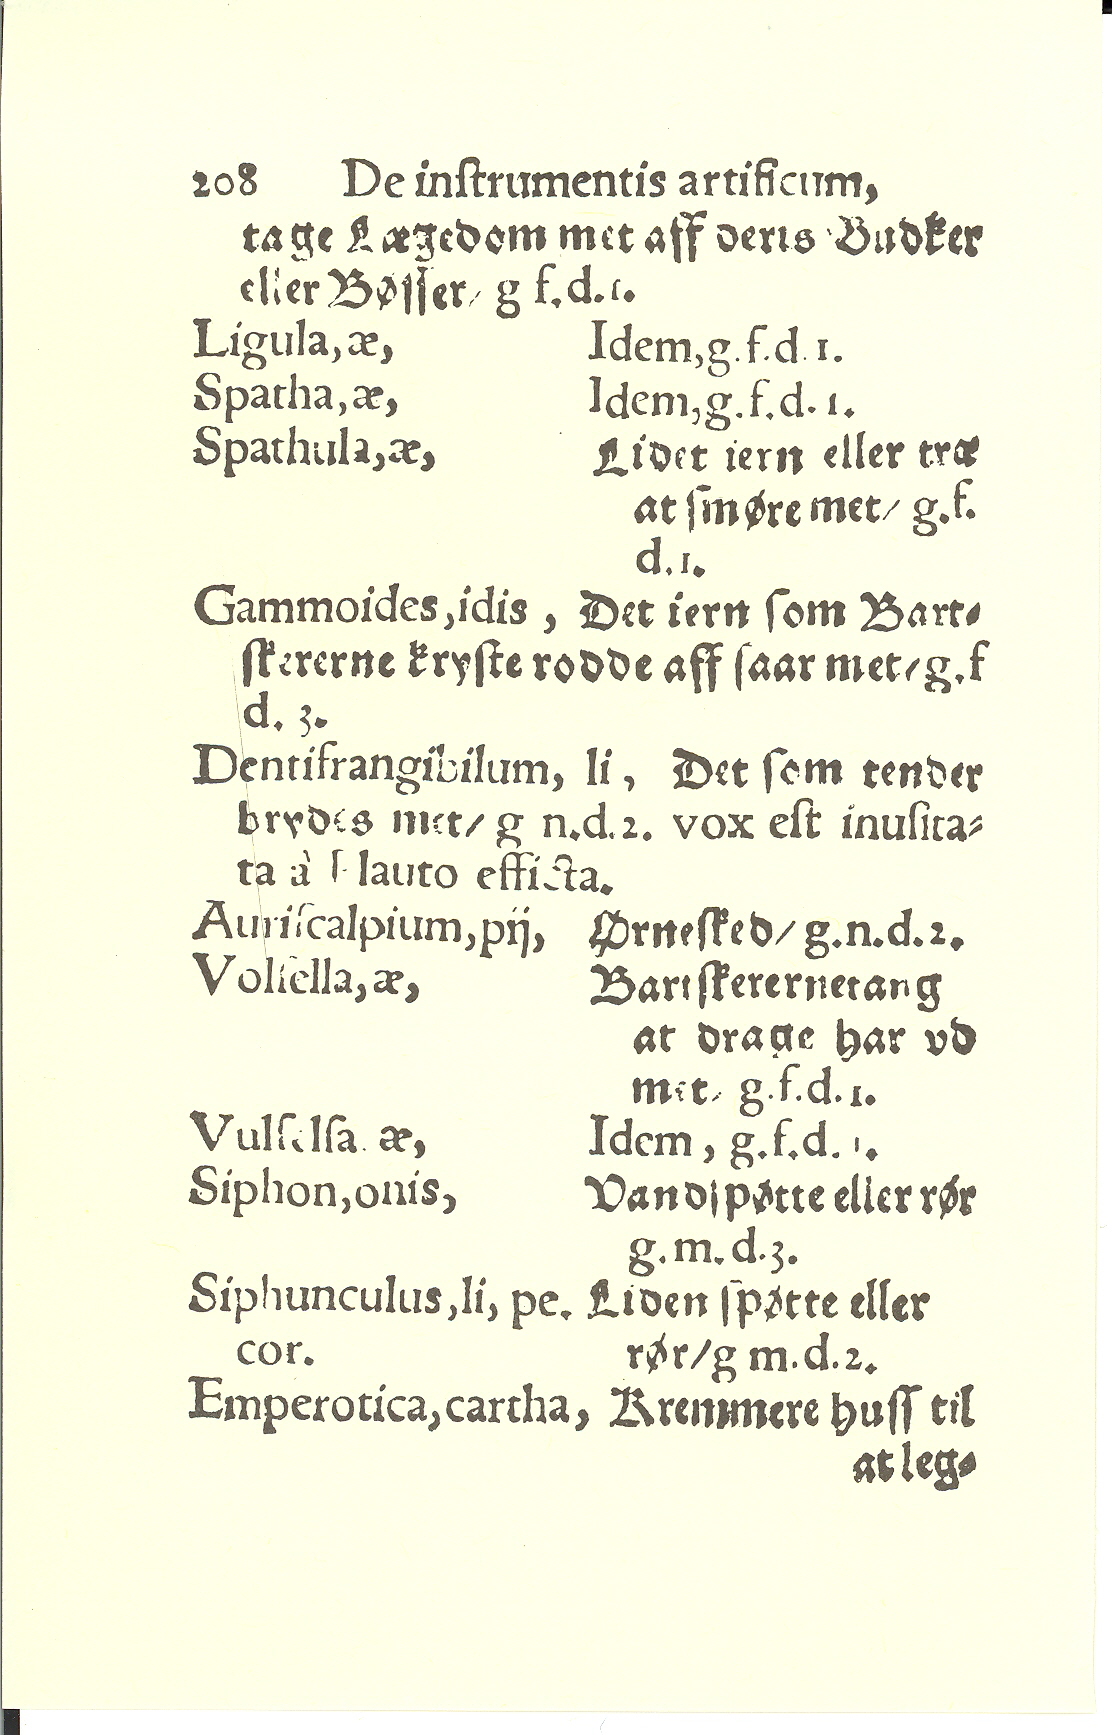 208 De inſtrumentis artificum,
tage Lægedom met aff deris Budker
eller Bøſſer/ g f.d.1.
Ligula,æ, Idem,g.f.d.1.
Spatha,æ, Idem,g.f.d.1.
Spathula,æ, Lidet iern eller træ
at ſmøre met/ g.f.
d.1.
Gammoides,idis, Det iern ſom Bart⸗
ſkererne kryſte rodde aff ſaar met/g.f
d. 3.
Dentifrangibilum, li, Det ſom tender
brydes met/ g n.d.2. vox eſt inuſita⸗
ta à Plauto efficta.
Auriſcalpium,pij, Ørneſked/ g.n.d.2.
Volſella,æ, Bartſkerernetang
at drage har vd
met/ g.f.d.1.
Vulſelſa æ, Idem, g.f.d.1.
Siphon,onis, Vandſpøtte eller rør
g.m.d.3.
Siphunculus,li, pe. Liden ſpøtte eller
cor. rør/g m.d.2.
Emperotica,cartha, Kremmere huſſ til
at leg⸗